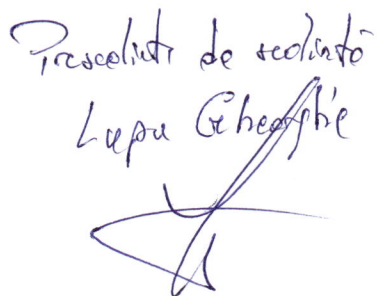 Președinte de ședință
Lupu Gheorghe